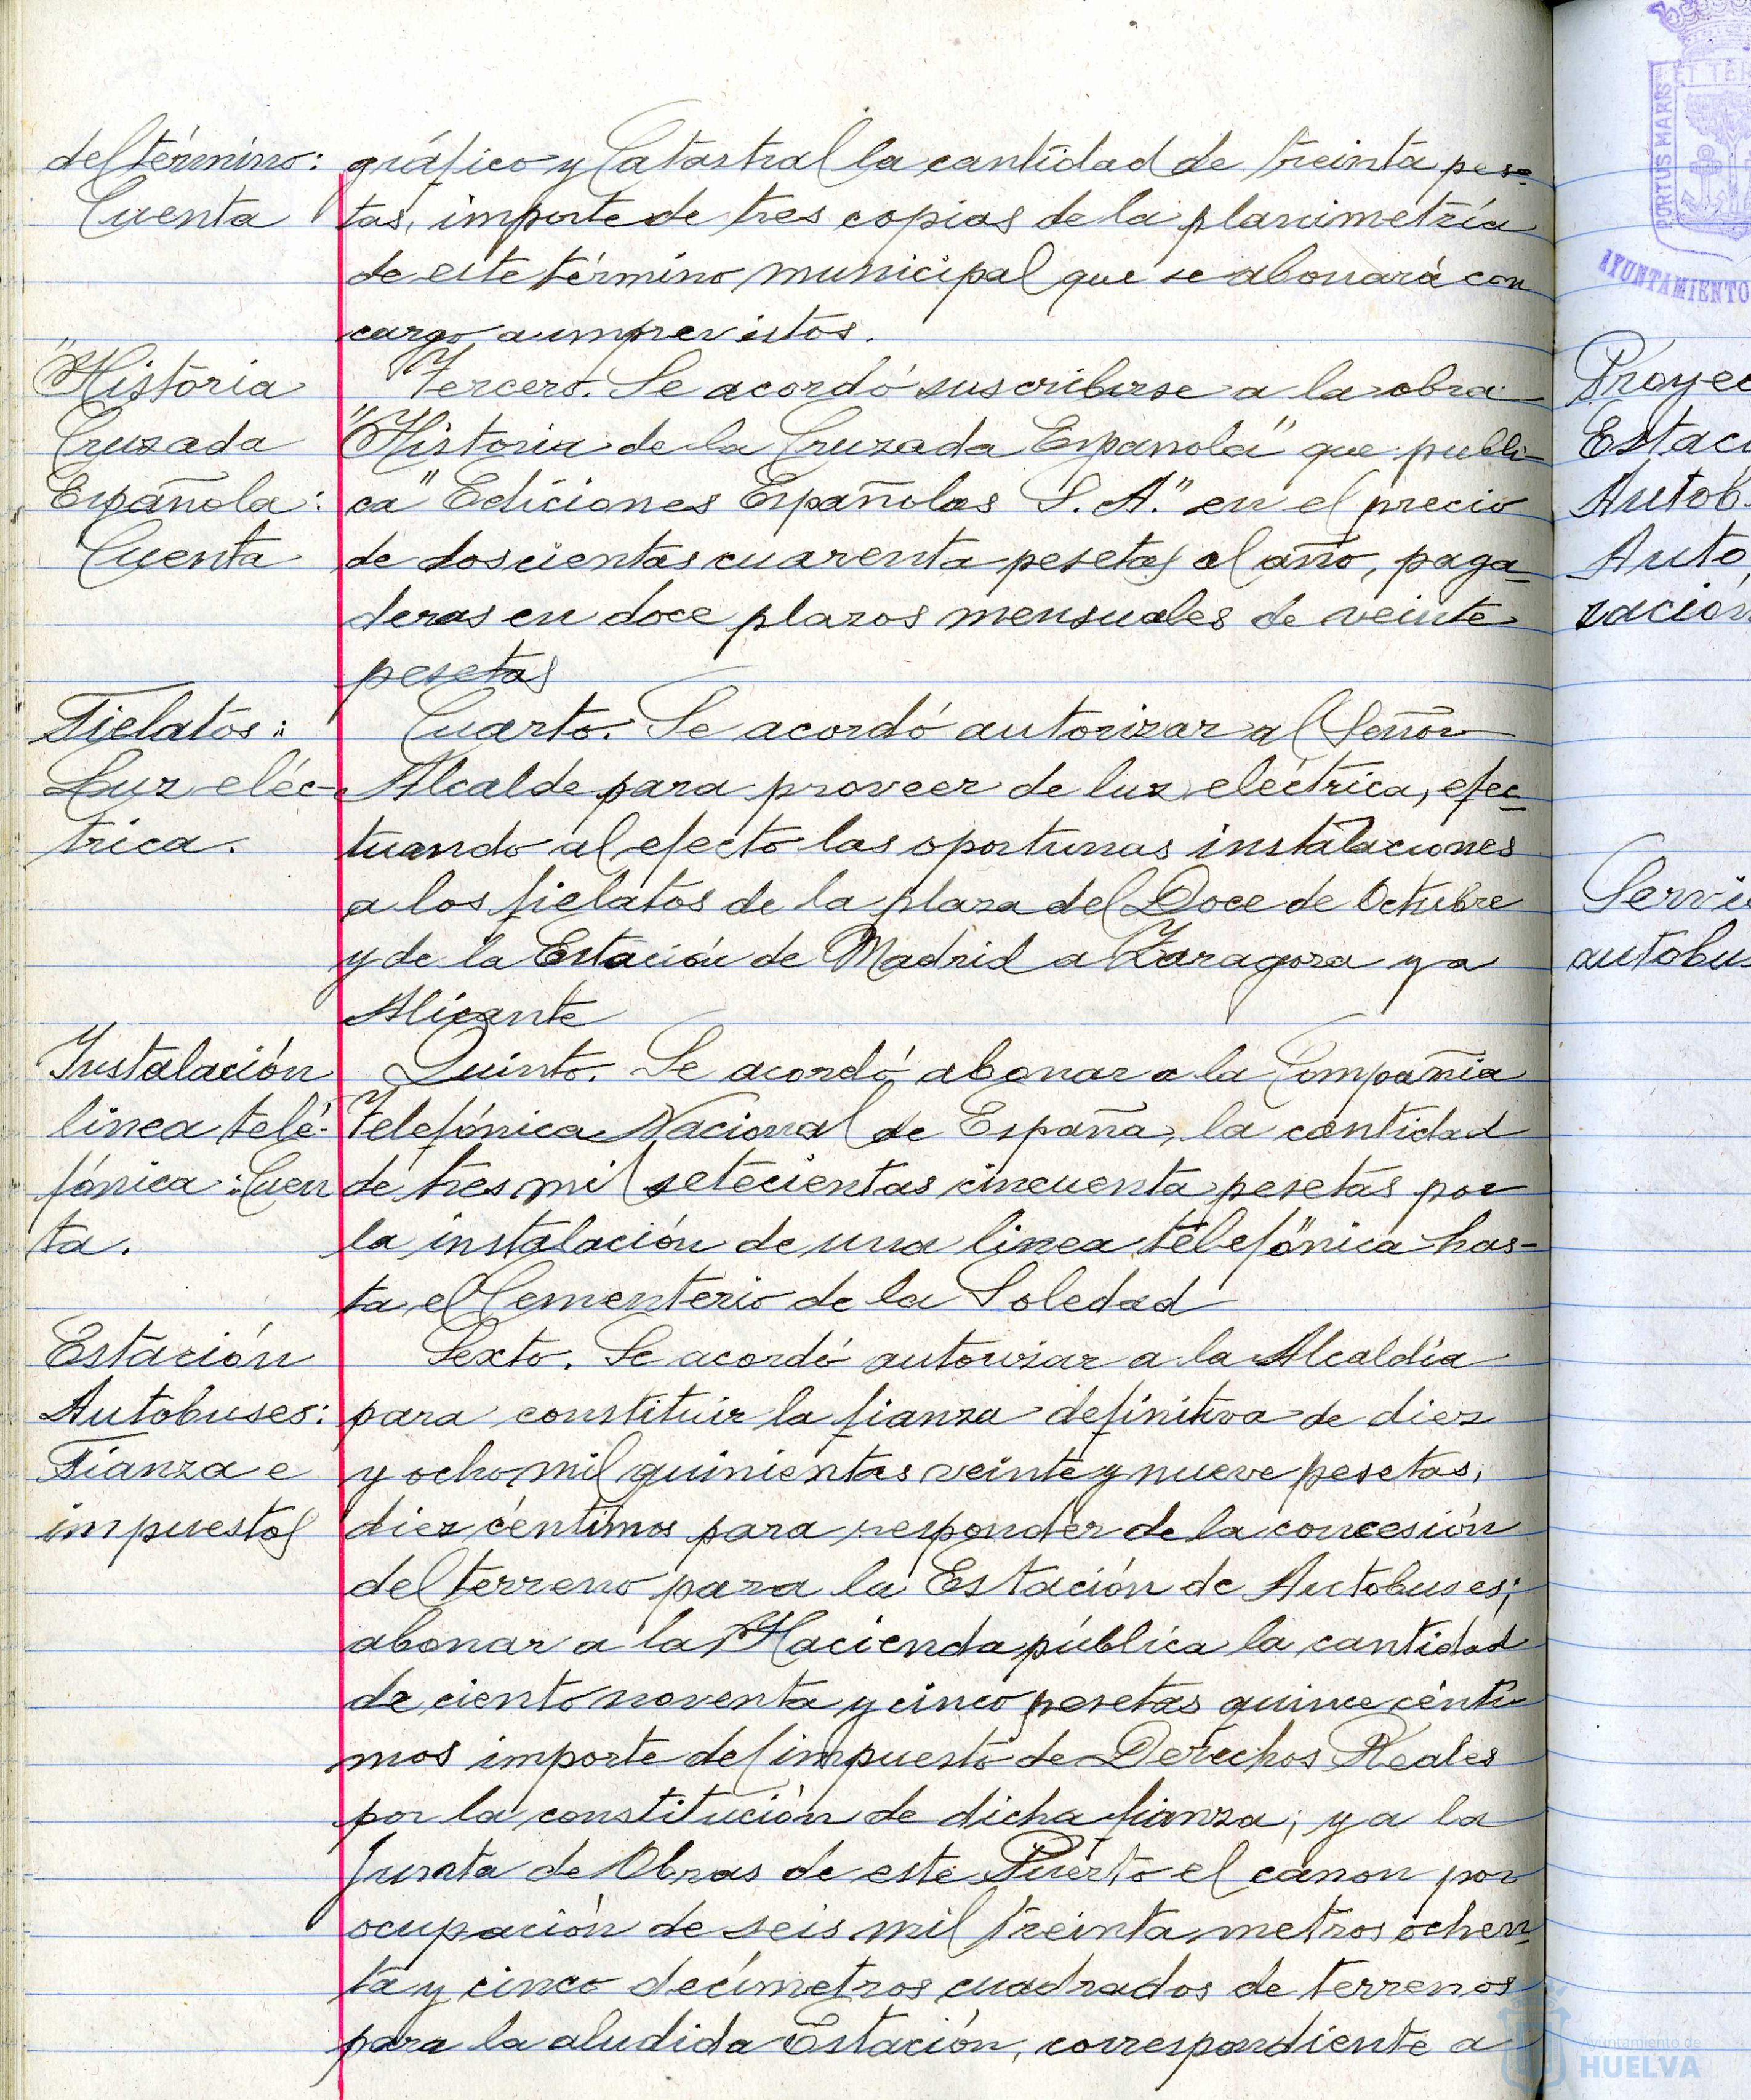 del término:
Cuenta
gráfico y Catastral la cantidad de treinta pese-
tas, importe de tres copias de la planimetría
de este término municipal que se abonará con
cargo a imprevistos.
"Historia
Cruzada
Española:
Cuenta
Tercero. Se acordó suscribirse a la obra
"Historia de la Cruzada Española" que publi-
ca "Ediciones Españolas S. A." en el precio
de doscientas cuarenta pesetas al año, paga-
deras en doce plazos mensuales de veinte
pesetas
Fielatos:
Luz eléc-
trica.
Cuarto. Se acordó autorizar al Señor
Alcalde para proveer de luz eléctrica, efec-
tuando al efecto las oportunas instalaciones
a los fielatos de la plaza del Doce de Octubre
y de la Estación de Madrid a Zaragoza y a
Alicante
Instalación
linea telé-
fónica: Cuen
ta.
Quinto. Se acordó abonar a la Compañia
Telefónica Nacional de España, la cantidad
de tres mil setecientas cincuenta pesetas por
la instalación de una linea telefónica has-
ta el Cementerio de la Soledad
Estación
Autobuses:
Fianza e
impuestos
Sexto. Se acordó autorizar a la Alcaldía
para constituir la fianza definitiva de diez
y ocho mil quinientas veinte y nueve pesetas,
diez céntimos para responder de la concesión
del terreno para la Estación de Autobuses;
abonar a la Hacienda pública la cantidad
de ciento noventa y cinco pesetas quince cénti-
mos importe del impuesto de Derechos Reales
por la constitución de dicha fianza; y a la
Junta de Obras de este Puerto el canon por
ocupación de seis mil treinta metros ochen-
ta y cinco decímetros cuadrados de terrenos
para la aludida Estación, correspondiente a
PORTUS MARIS ET TER
AYUNTAMIENTO
Proyec
Estaci
Autob.
Auto
zación
Servi
autobus
Ayuntamiento de
HUELVA